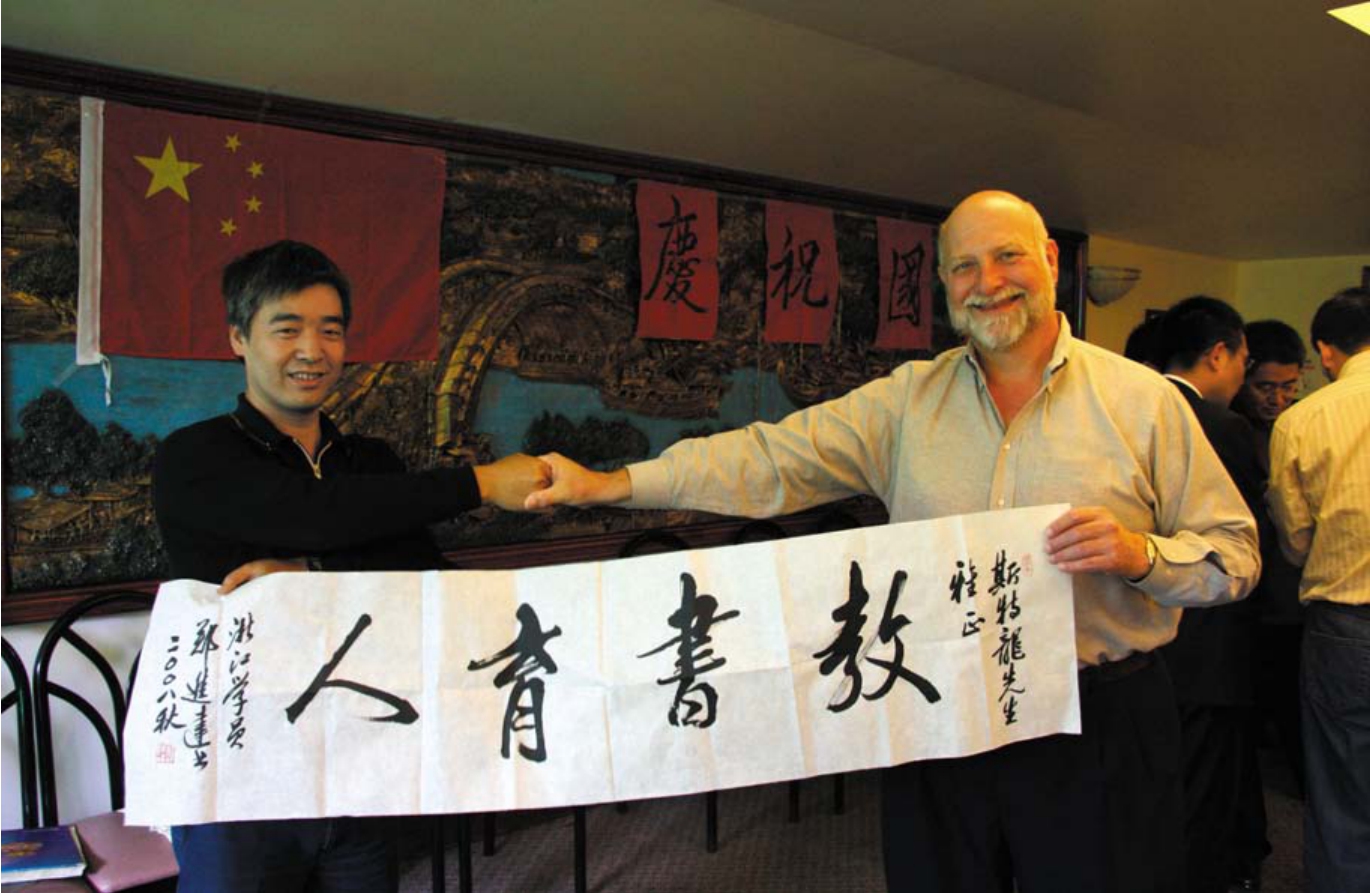 慶祝國
斯特龍先生
雅正
教書育人
浙江学员
鄭進達书
二〇〇八秋